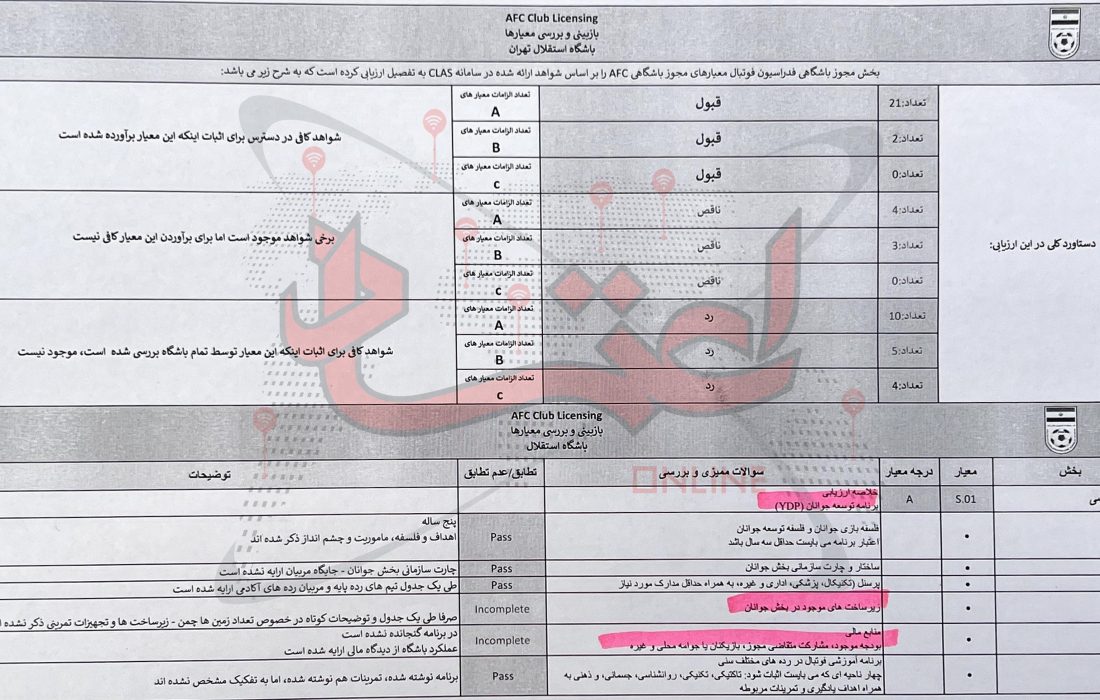 AFC Club Licensing
بازبینی و بررسی معیارها
باشگاه استقلال تهران
بخش مجوز باشگاهی فدراسیون فوتبال معیارهای مجوز باشگاهی AFC را بر اساس شواهد ارائه شده در سامانه CLAS به تفصیل ارزیابی کرده است که به شرح زیر می باشد:
دستاورد کلی در این ارزیابی:
تعداد:21
قبول
تعداد الزامات معیار های
A
شواهد کافی در دسترس برای اثبات اینکه این معیار برآورده شده است
تعداد:2
قبول
تعداد الزامات معیار های
B
تعداد:0
قبول
تعداد الزامات معیار های
C
تعداد:4
ناقص
تعداد الزامات معیار های
A
برخی شواهد موجود است اما برای برآوردن این معیار کافی نیست
تعداد:3
ناقص
تعداد الزامات معیار های
B
تعداد:0
ناقص
تعداد الزامات معیار های
C
تعداد:10
رد
تعداد الزامات معیار های
A
شواهد کافی برای اثبات اینکه این معیار توسط تمام باشگاه بررسی شده است، موجود نیست
تعداد:5
رد
تعداد الزامات معیار های
B
تعداد:4
رد
تعداد الزامات معیار های
C
AFC Club Licensing
بازبینی و بررسی معیارها
باشگاه استقلال
بخش
معیار
درجه معیار
سوالات ممیزی و بررسی
تطابق/عدم تطابق
توضیحات
S.01
A
خلاصه ارزیابی
برنامه توسعه جوانان (YDP)
فلسفه بازی جوانان و فلسفه توسعه جوانان
اعتبار برنامه می بایست حداقل سه سال باشد
Pass
پنج ساله
اهداف و فلسفه، ماموریت و چشم انداز ذکر شده اند
ساختار و چارت سازمانی بخش جوانان
Pass
چارت سازمانی بخش جوانان - جایگاه مربیان ارایه نشده است
پرسنل (تکنیکال، پزشکی، اداری و غیره، به همراه حداقل مدارک مورد نیاز
Pass
طی یک جدول تیم های رده پایه و مربیان رده های آکادمی ارایه شده است
زیرساخت های موجود در بخش جوانان
Incomplete
صرفا طی یک جدول و توضیحات کوتاه در خصوص تعداد زمین ها چمن - زیرساخت ها و تجهیزات تمرینی ذکر نشده
منابع مالی
بودجه موجود، مشارکت متقاضی مجوز، بازیکنان یا جوامه محلی و غیره
Incomplete
در برنامه گنجانده نشده است
عملکرد باشگاه از دیدگاه مالی ارایه شده است
برنامه آموزشی فوتبال در رده های مختلف سنی
چهار ناحیه ای که می بایست اثبات شود: تاکتیکی، تکنیکی، روانشناسی، جسمانی، و ذهنی به
همراه اهداف یادگیری و تمرینات مربوطه
Pass
برنامه نوشته شده، تمرینات هم نوشته شده، اما به تفکیک مشخص نشده اند
ONLINE